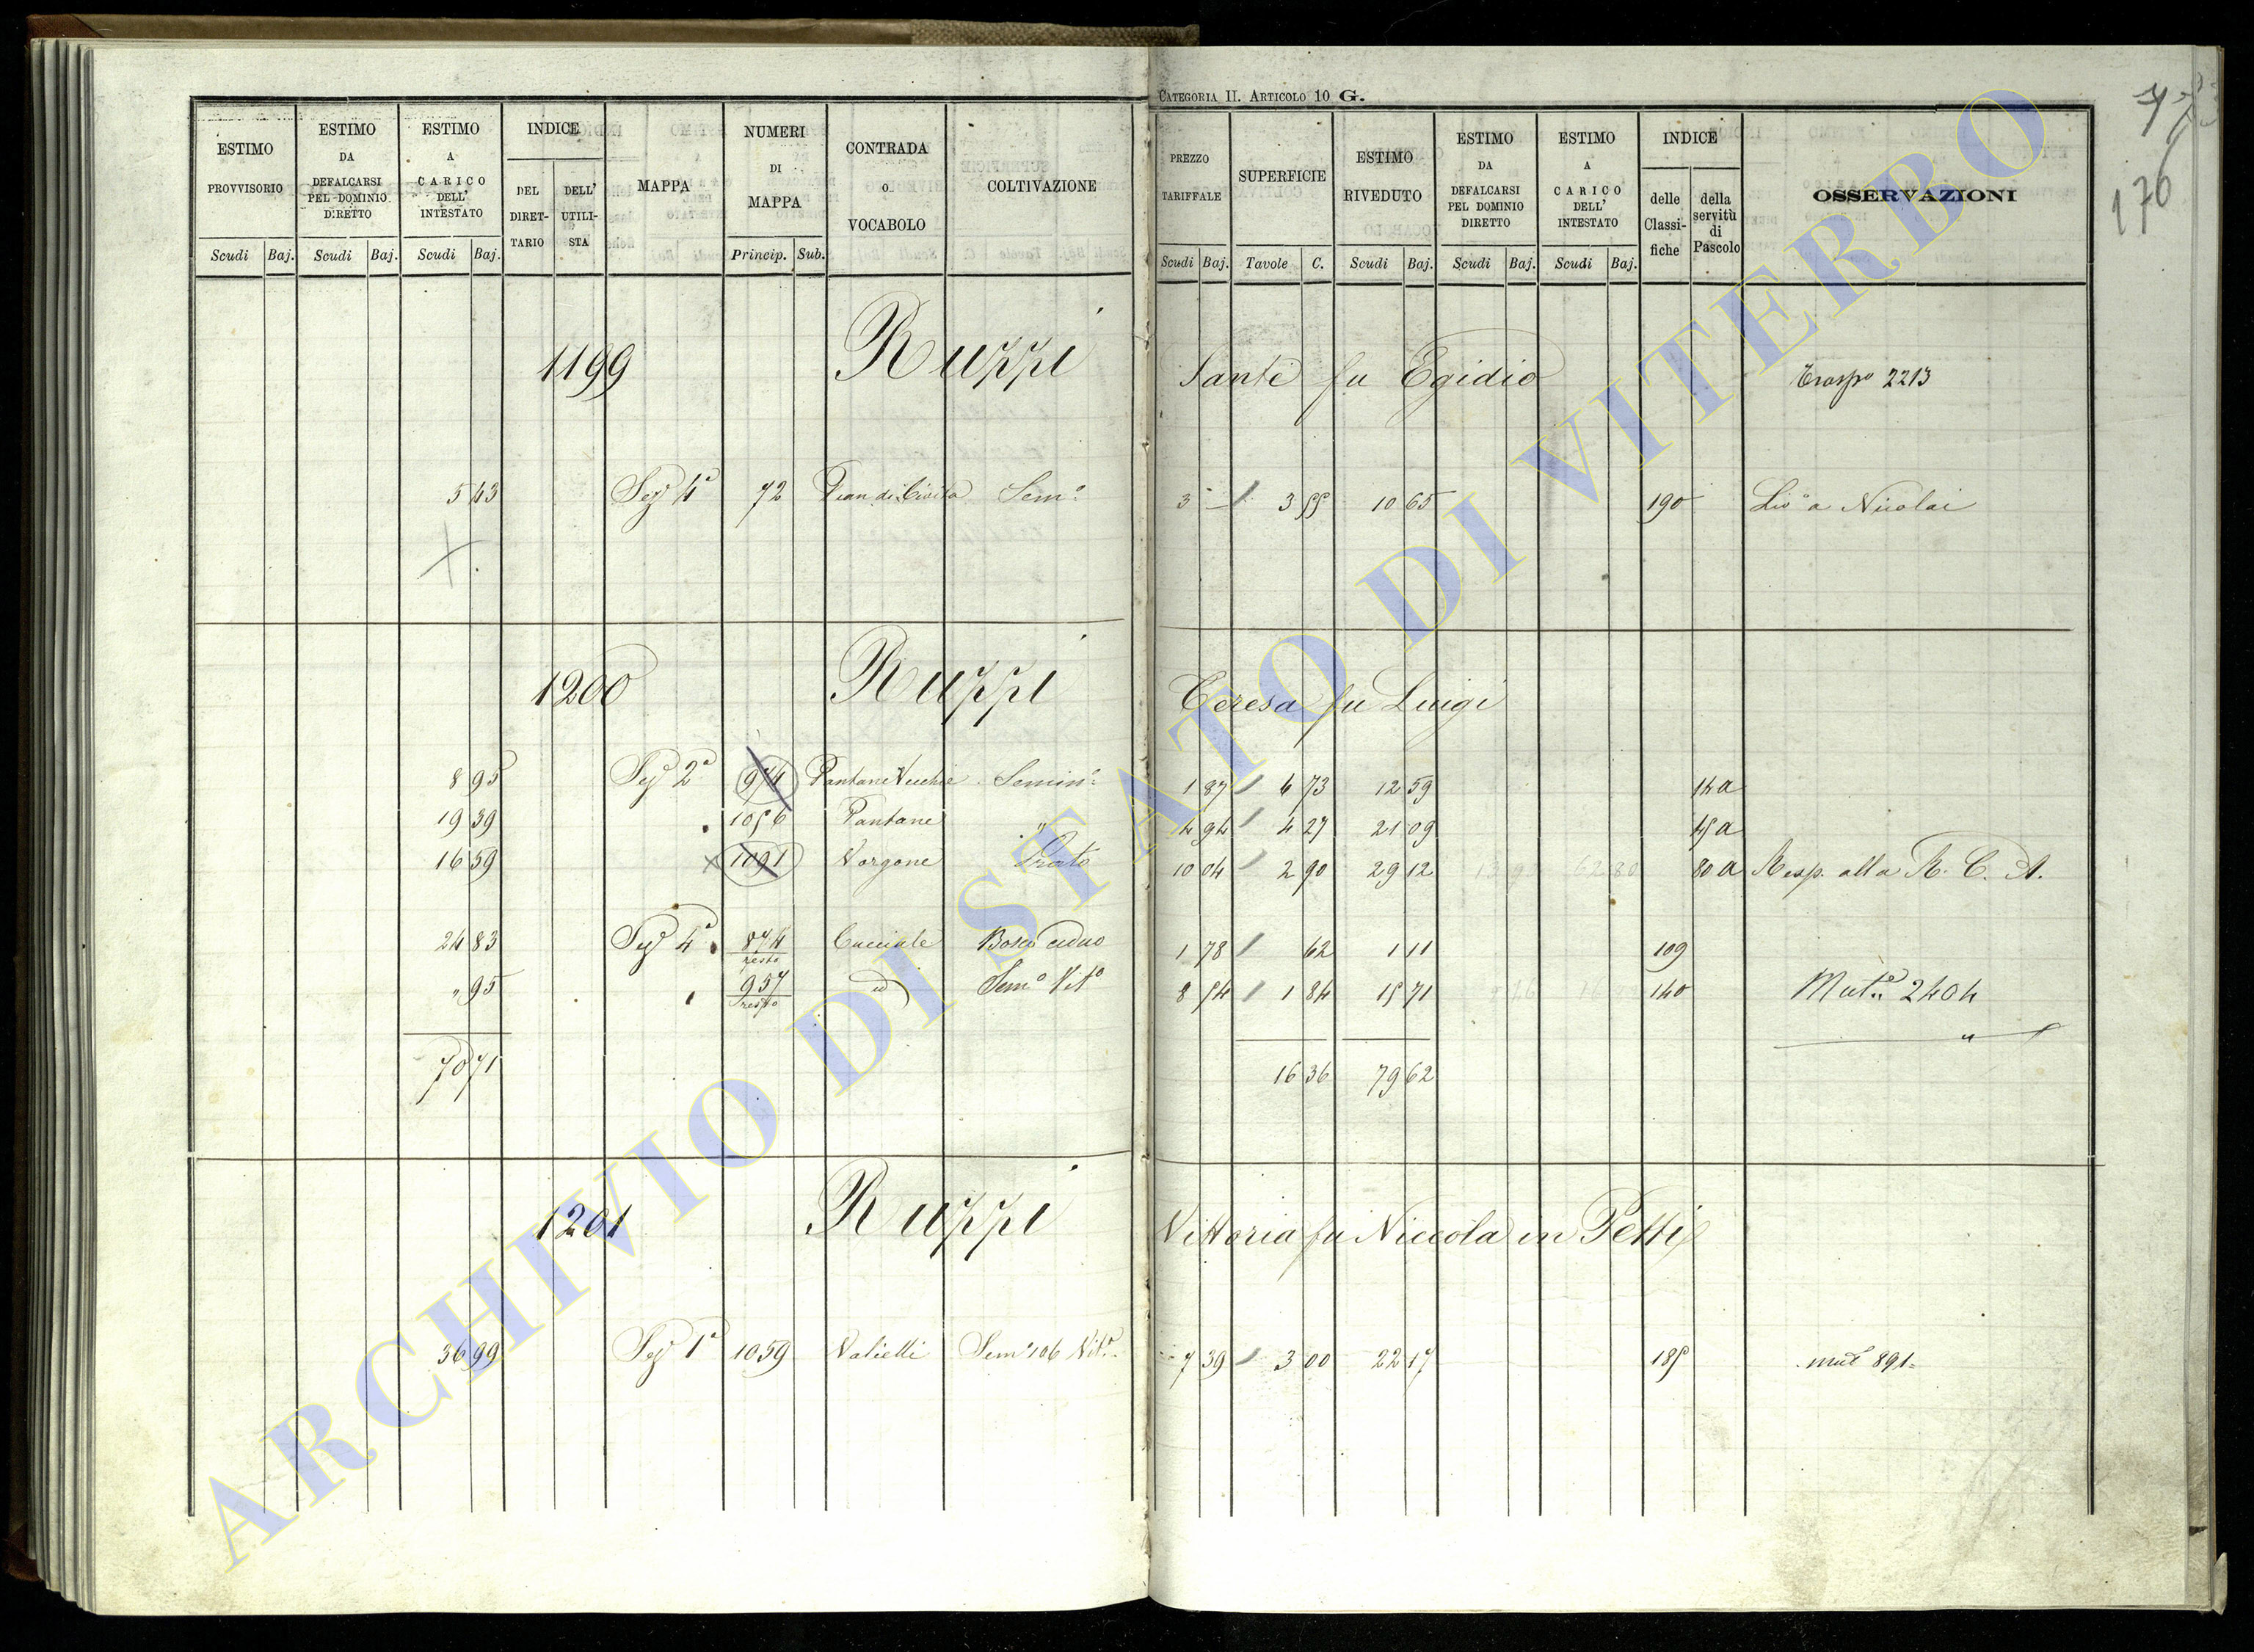 CATEGORIA II. ARTICOLO 10 G.
176
ESTIMO PROVVISORIO Scudi Baj.
ESTIMO DA DEFALCARSI PEL DOMINIO DIRETTO Scudi Baj.
ESTIMO A CARICO DELL' INTESTATO Scudi Baj.
INDICE DEL DIRETTARIO DELL' UTILISTA
MAPPA
NUMERI DI MAPPA Princip. Sub.
CONTRADA O VOCABOLO
COLTIVAZIONE
PREZZO TARIFFALE Scudi Baj.
SUPERFICIE Tavole C.
ESTIMO RIVEDUTO Scudi Baj.
ESTIMO DA DEFALCARSI PEL DOMINIO DIRETTO Scudi Baj.
ESTIMO A CARICO DELL' INTESTATO Scudi Baj.
INDICE delle Classifiche della servitù di Pascolo
OSSERVAZIONI
1199 Ruzzi Sante fu Egidio Trasp° 2213
5 43 Sez 4ª 72 Pian di Civita Sem° 3 — 3 55 10 65 190 Liv° a Nicolai
1200 Ruzzi Teresa fu Luigi
8 95 Sez 2ª 974 Pantane Vecchie Semin° 1 87 6 73 12 59 14 a
19 39 1056 Pantane " 4 94 4 27 21 09 45 a
16 59 1091 Vorgone Prato 10 04 2 90 29 12 80 a Resp. alla R. C. A.
24 83 Sez 4ª 874 resto Bosco ceduo 1 78 62 1 11 109
" 95 957 resto id Sem° Vit° 8 54 1 84 15 71 140 Mut° 2404
70 71 16 36 79 62
1201 Ruzzi Vittoria fu Niccola in Petti
36 99 Sez 1ª 1059 Valielli Sem° 106 Vit° 7 39 3 00 22 17 185 mut 891
ARCHIVIO DI STATO DI VITERBO